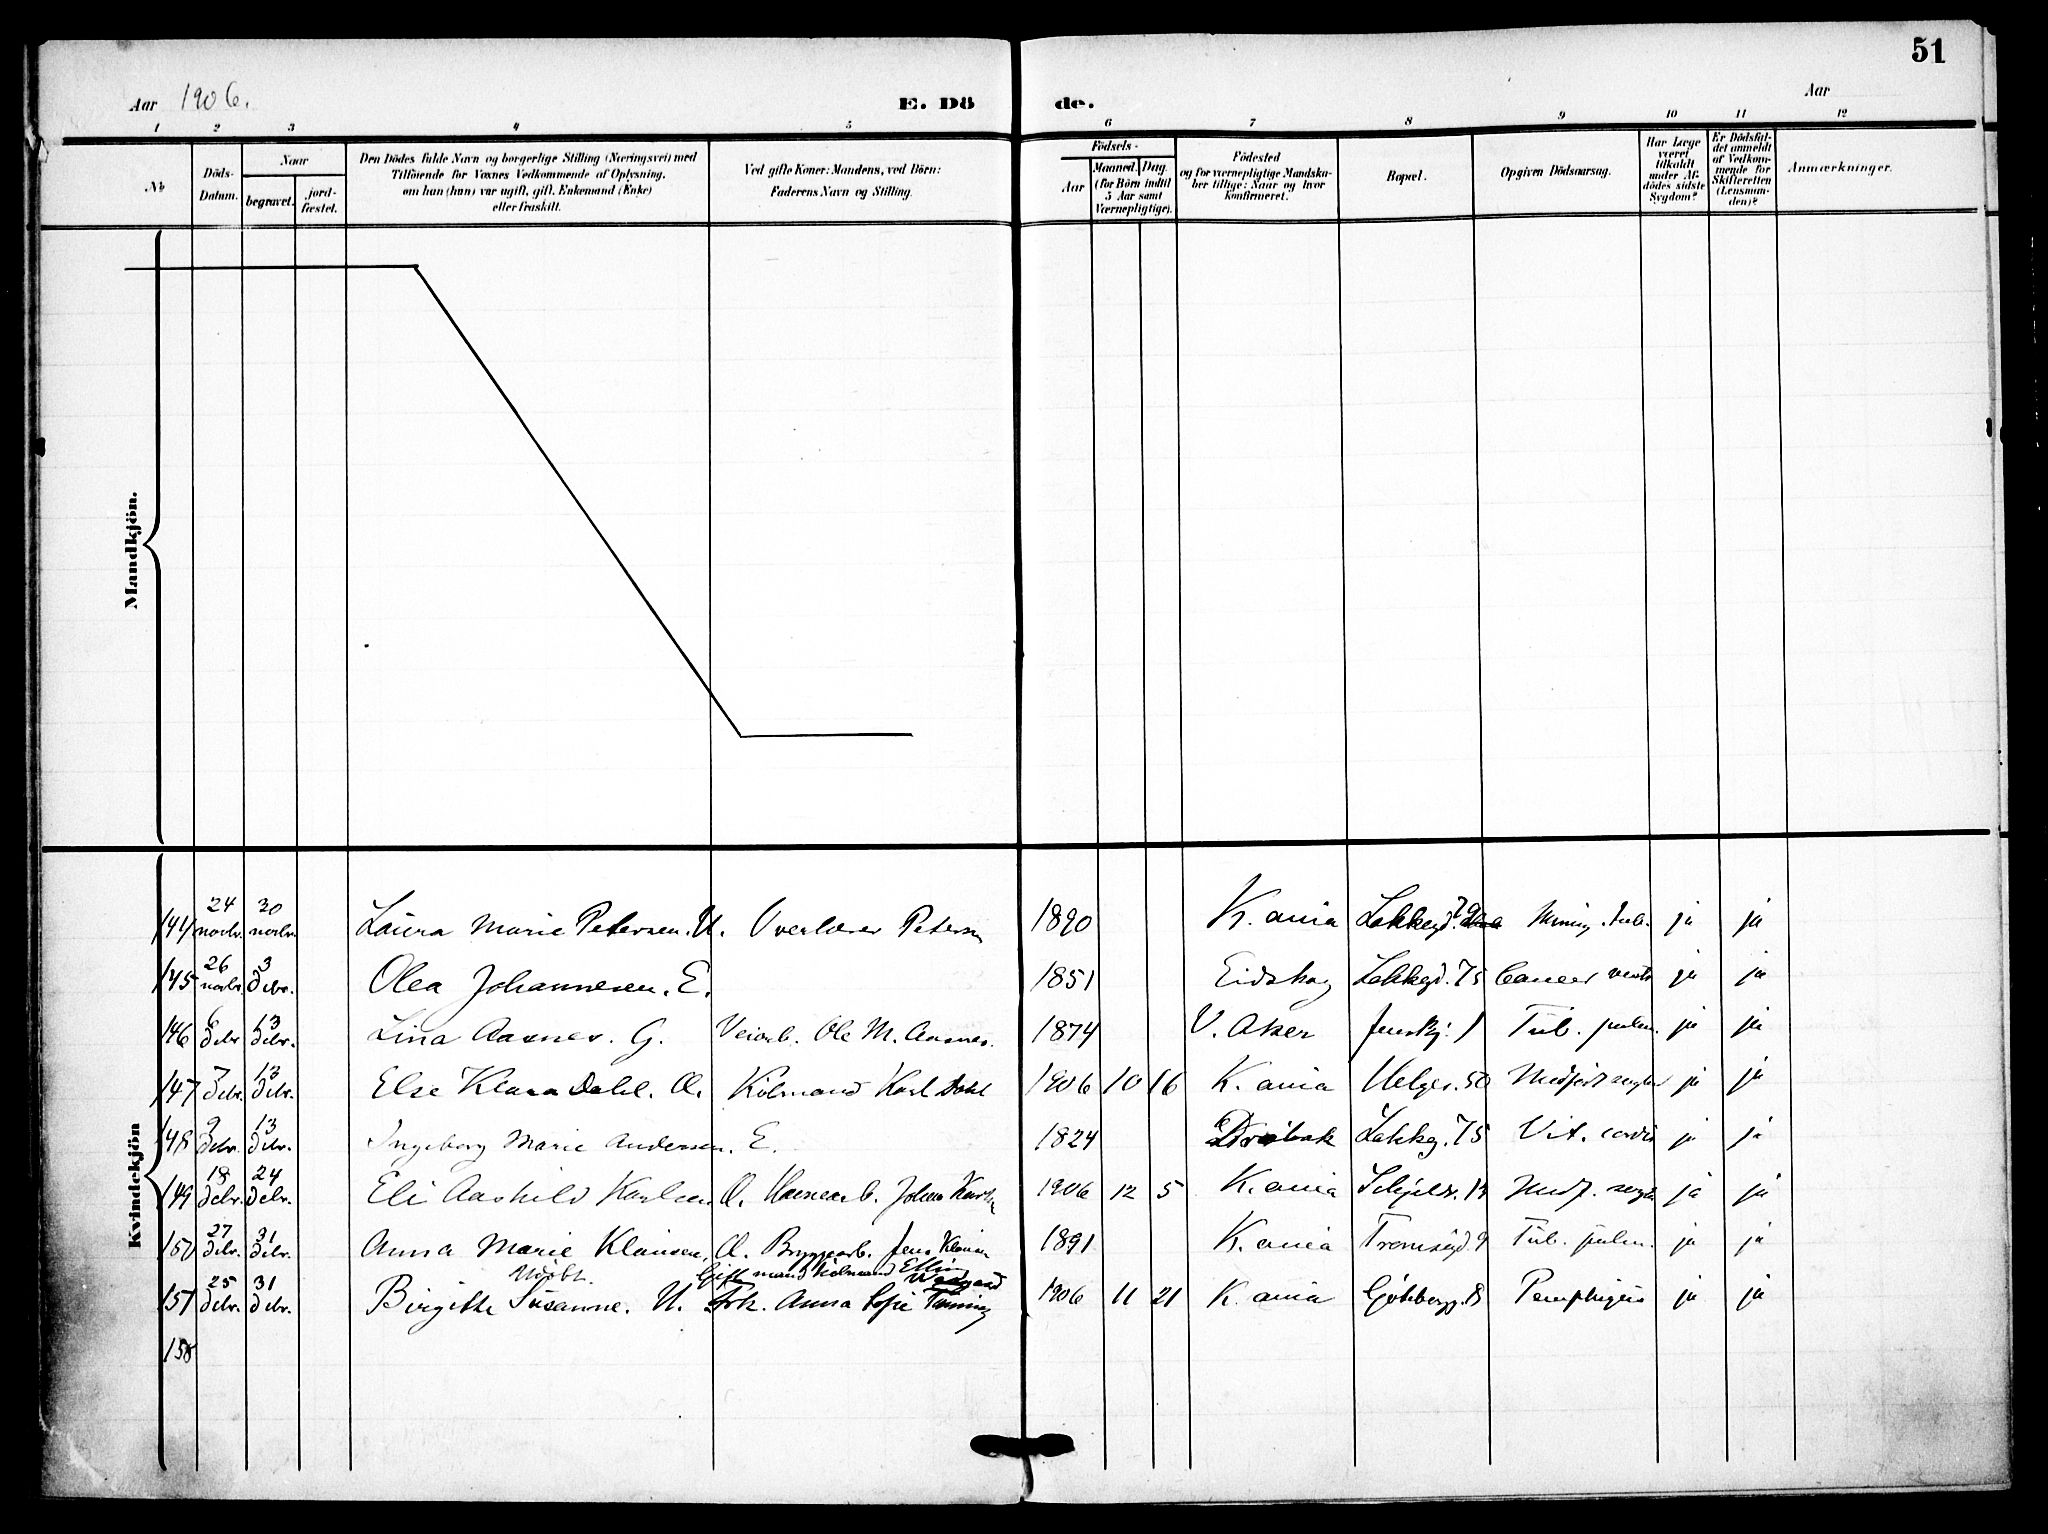 51
Aar 1906.
E. Dö de.
Aar
1 2 3 4 5 6 7 8 9 10 11 12
No
Döds-Datum.
Naar
begravet.
jord-fæstet.
Den Dödes fulde Navn og borgerlige Stilling (Næringsvei) med
Tilföiende for Voxnes Vedkommende af Oplysning,
om han (hun) var ugift, gift, Enkemand (Enke)
eller fraskilt.
Ved gifte Koner: Mandens, ved Börn:
Faderens Navn og Stilling.
Födsels-
Aar
Maaned. Dag.
(for Börn indtil
5 Aar samt
Værnepligtige).
Födested
og for værnepligtige Mandska-
ber tillige: Naar og hvor
konfirmeret.
Bopæl.
Opgiven Dödsaarsag.
Har Læge
været
tilkaldt
under Af-
dödes sidste
Sygdom?
Er Dödsfal-
det anmeldt
af Vedkom-
mende for
Skifteretten
(Lensman-
den)?
Anmærkninger.
Mandkjön.
Kvindekjön
144 24 novbr. 30 novbr. Laura Marie Petersen. U. Overlærer Petersen 1890 K.ania Lakkegd. Mening. tub. ja ja
145 26 novbr. 3 debr. Olea Johannesen. E. 1851 Eidskog Lakkegd. 75 Cancer ventr ja ja
146 6 debr 13 debr. Lina Aasnes. G. Veiarb. Ole M. Aasnes. 1874 V. Aker 1 Tub. pulm. ja ja
147 7 debr. 13 debr. Else Klara Dahl. Æ. Kulmand Karl Dahl 1906 10 16 K.ania Helges. 50 Medfödt ja ja
148 9 debr. 13 debr. Ingeborg Marie Andersen. E. 1824 Dröbak Lakkeg. 75 Vit. cordis ja ja
149 18 debr. 24 debr. Eli Aashild Karlsen Æ. Johan Karlsen 1906 12 5 K.ania Schjelds. 13 Medf. ja ja
150 27 debr. 31 debr. Anna Marie Klausen. Æ. Bryggearb. Jens Klausen 1891 K.ania Tromsögd. 9 Tub. pulm. ja ja
151 25 debr. 31 debr. Udöbt. Birgitte Susanne. U. Gift mand kulmand
Frk. Anna Sofie 1906 11 21 K.ania Götebergg. 8 Pemphigus ja ja
158